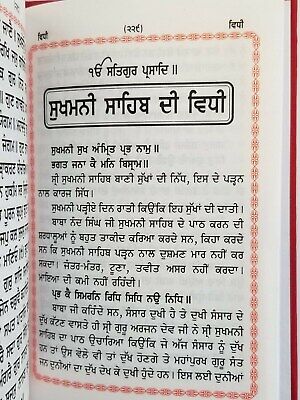 ਵਿਧੀ (੨੨੬) ਵਿਧੀ
ੴ ਸਤਿਗੁਰ ਪ੍ਰਸਾਦਿ॥
ਸੁਖਮਨੀ ਸਾਹਿਬ ਦੀ ਵਿਧੀ
ਸੁਖਮਨੀ ਸੁਖ ਅੰਮ੍ਰਿਤ ਪ੍ਰਭ ਨਾਮੁ॥
ਭਗਤ ਜਨਾ ਕੈ ਮਨਿ ਬਿਸ੍ਰਾਮ॥
ਸ੍ਰੀ ਸੁਖਮਨੀ ਸਾਹਿਬ ਬਾਣੀ ਸੁੱਖਾਂ ਦੀ ਨਿੱਧ, ਇਸ ਦੇ ਪੜ੍ਹਨ
ਨਾਲ ਕਾਰਜ ਸਿੱਧ।
ਸੁਖਮਨੀ ਪੜ੍ਹੀਏ ਦਿਨ ਰਾਤੀ ਕਿਉਂਕਿ ਇਹ ਸੁੱਖਾਂ ਦੀ ਦਾਤੀ।
ਬਾਬਾ ਨੰਦ ਸਿੰਘ ਜੀ ਸੁਖਮਨੀ ਸਾਹਿਬ ਦੇ ਪਾਠ ਕਰਨ ਦੀ
ਸ਼ਰਧਾਲੂਆਂ ਨੂੰ ਬਹੁਤ ਤਾਕੀਦ ਕਰਿਆ ਕਰਦੇ ਸਨ, ਕਿਹਾ ਕਰਦੇ
ਸਨ ਕਿ ਸੁਖਮਨੀ ਸਾਹਿਬ ਪੜ੍ਹਨ ਨਾਲ ਦੁਸ਼ਮਣ ਮਾਰ ਨਹੀਂ ਕਰ
ਸਕਦਾ। ਜੰਤਰ-ਮੰਤਰ, ਟੂਣਾ, ਤਵੀਤ ਅਸਰ ਨਹੀਂ ਕਰਦਾ।
ਮਾਇਆ ਦੀ ਕਮੀ ਨਹੀਂ ਰਹਿੰਦੀ।
ਪ੍ਰਭ ਕੈ ਸਿਮਰਨਿ ਰਿਧਿ ਸਿਧਿ ਨਉ ਨਿਧਿ॥
ਬਾਬਾ ਜੀ ਕਹਿੰਦੇ ਸਨ, ਸੰਸਾਰ ਦੁਖੀ ਹੈ ਤੇ ਦੁਖੀ ਸੰਸਾਰ ਦੇ
ਦੁੱਖ ਕੱਟਣ ਵਾਸਤੇ ਹੀ ਸ੍ਰੀ ਗੁਰੂ ਅਰਜਨ ਦੇਵ ਜੀ ਨੇ ਸ੍ਰੀ ਸੁਖਮਨੀ
ਸਾਹਿਬ ਦਾ ਪਾਠ ਉਚਾਰਿਆ ਕਿਉਂਕਿ ਜੇ ਅੱਜ ਸੰਸਾਰ ਨੂੰ ਦੁੱਖ
ਹਨ ਤਾਂ ਉਸ ਵੇਲੇ ਵੀ ਤਾਂ ਦੁੱਖ ਹੋਣਗੇ ਤੇ ਮਹਾਂਪੁਰਖ ਗੁਰੂ ਸੰਤ
ਜਨ ਦੁਨੀਆਂ ਦਾ ਦੁੱਖ ਦੇਖ ਕੇ ਦੁਖੀ ਹੁੰਦੇ ਹਨ। ਇਸ ਲਈ ਦੁਨੀਆਂ